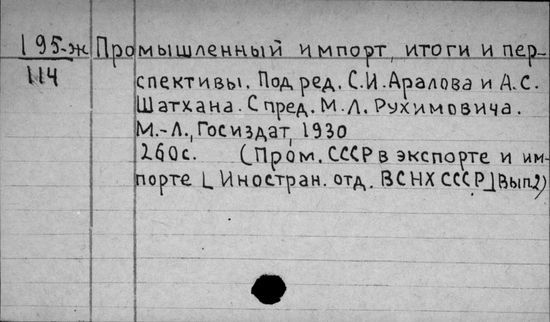 195-ж Промышленный импорт, итоги и пер-
114
спективы. Под ред. С.И. Аралова и А.С.
Шатхана. С пред. М.Л. Рухимовича.
М.-Л., Госиздат, 1930
260с. (Пром. СССР в экспорте и им-
порте [Иностран. отд. ВСНХ СССР] Вып2)